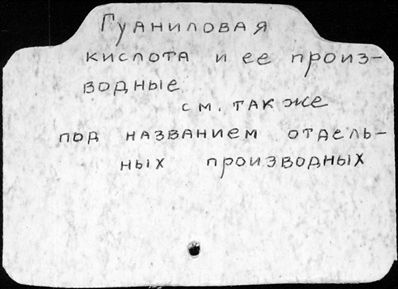 Гуаниловая
кислота и ее произ-
водные
см. также
под названием отдель-
ных производных